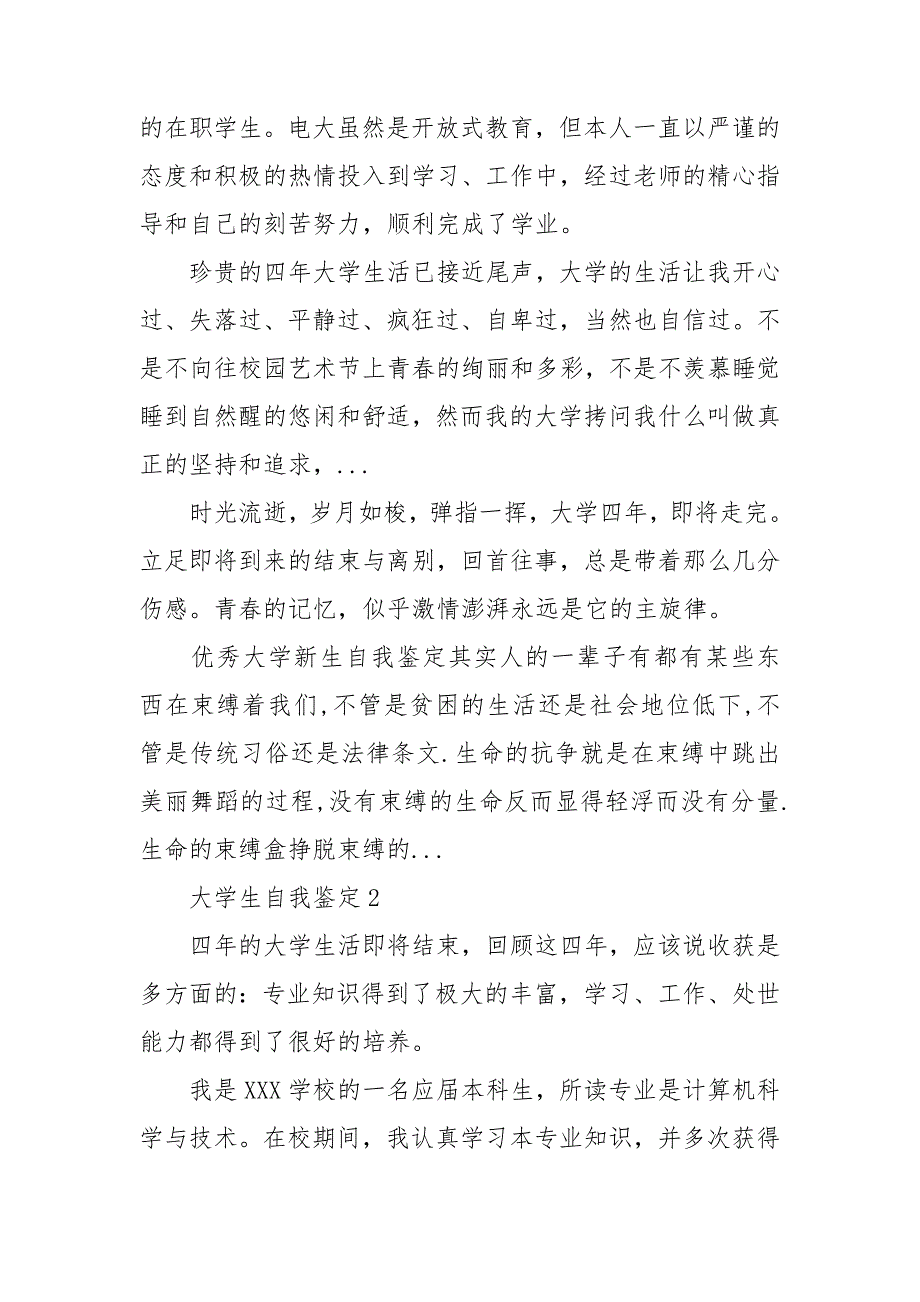 的在职学生。电大虽然是开放式教育，但本人一直以严谨的
态度和积极的热情投入到学习、工作中，经过老师的精心指
导和自己的刻苦努力，顺利完成了学业。
珍贵的四年大学生活已接近尾声，大学的生活让我开心
过、失落过、平静过、疯狂过、自卑过，当然也自信过。不
是不向往校园艺术节上青春的绚丽和多彩，不是不羡慕睡觉
睡到自然醒的悠闲和舒适，然而我的大学拷问我什么叫做真
正的坚持和追求，...
时光流逝，岁月如梭，弹指一挥，大学四年，即将走完。
立足即将到来的结束与离别，回首往事，总是带着那么几分
伤感。青春的记忆，似乎激情澎湃永远是它的主旋律。
优秀大学新生自我鉴定其实人的一辈子有都有某些东
西在束缚着我们,不管是贫困的生活还是社会地位低下,不
管是传统习俗还是法律条文.生命的抗争就是在束缚中跳出
美丽舞蹈的过程,没有束缚的生命反而显得轻浮而没有分量.
生命的束缚盒挣脱束缚的...
大学生自我鉴定2
四年的大学生活即将结束，回顾这四年，应该说收获是
多方面的：专业知识得到了极大的丰富，学习、工作、处世
能力都得到了很好的培养。
我是 XXX 学校的一名应届本科生，所读专业是计算机科
学与技术。在校期间，我认真学习本专业知识，并多次获得